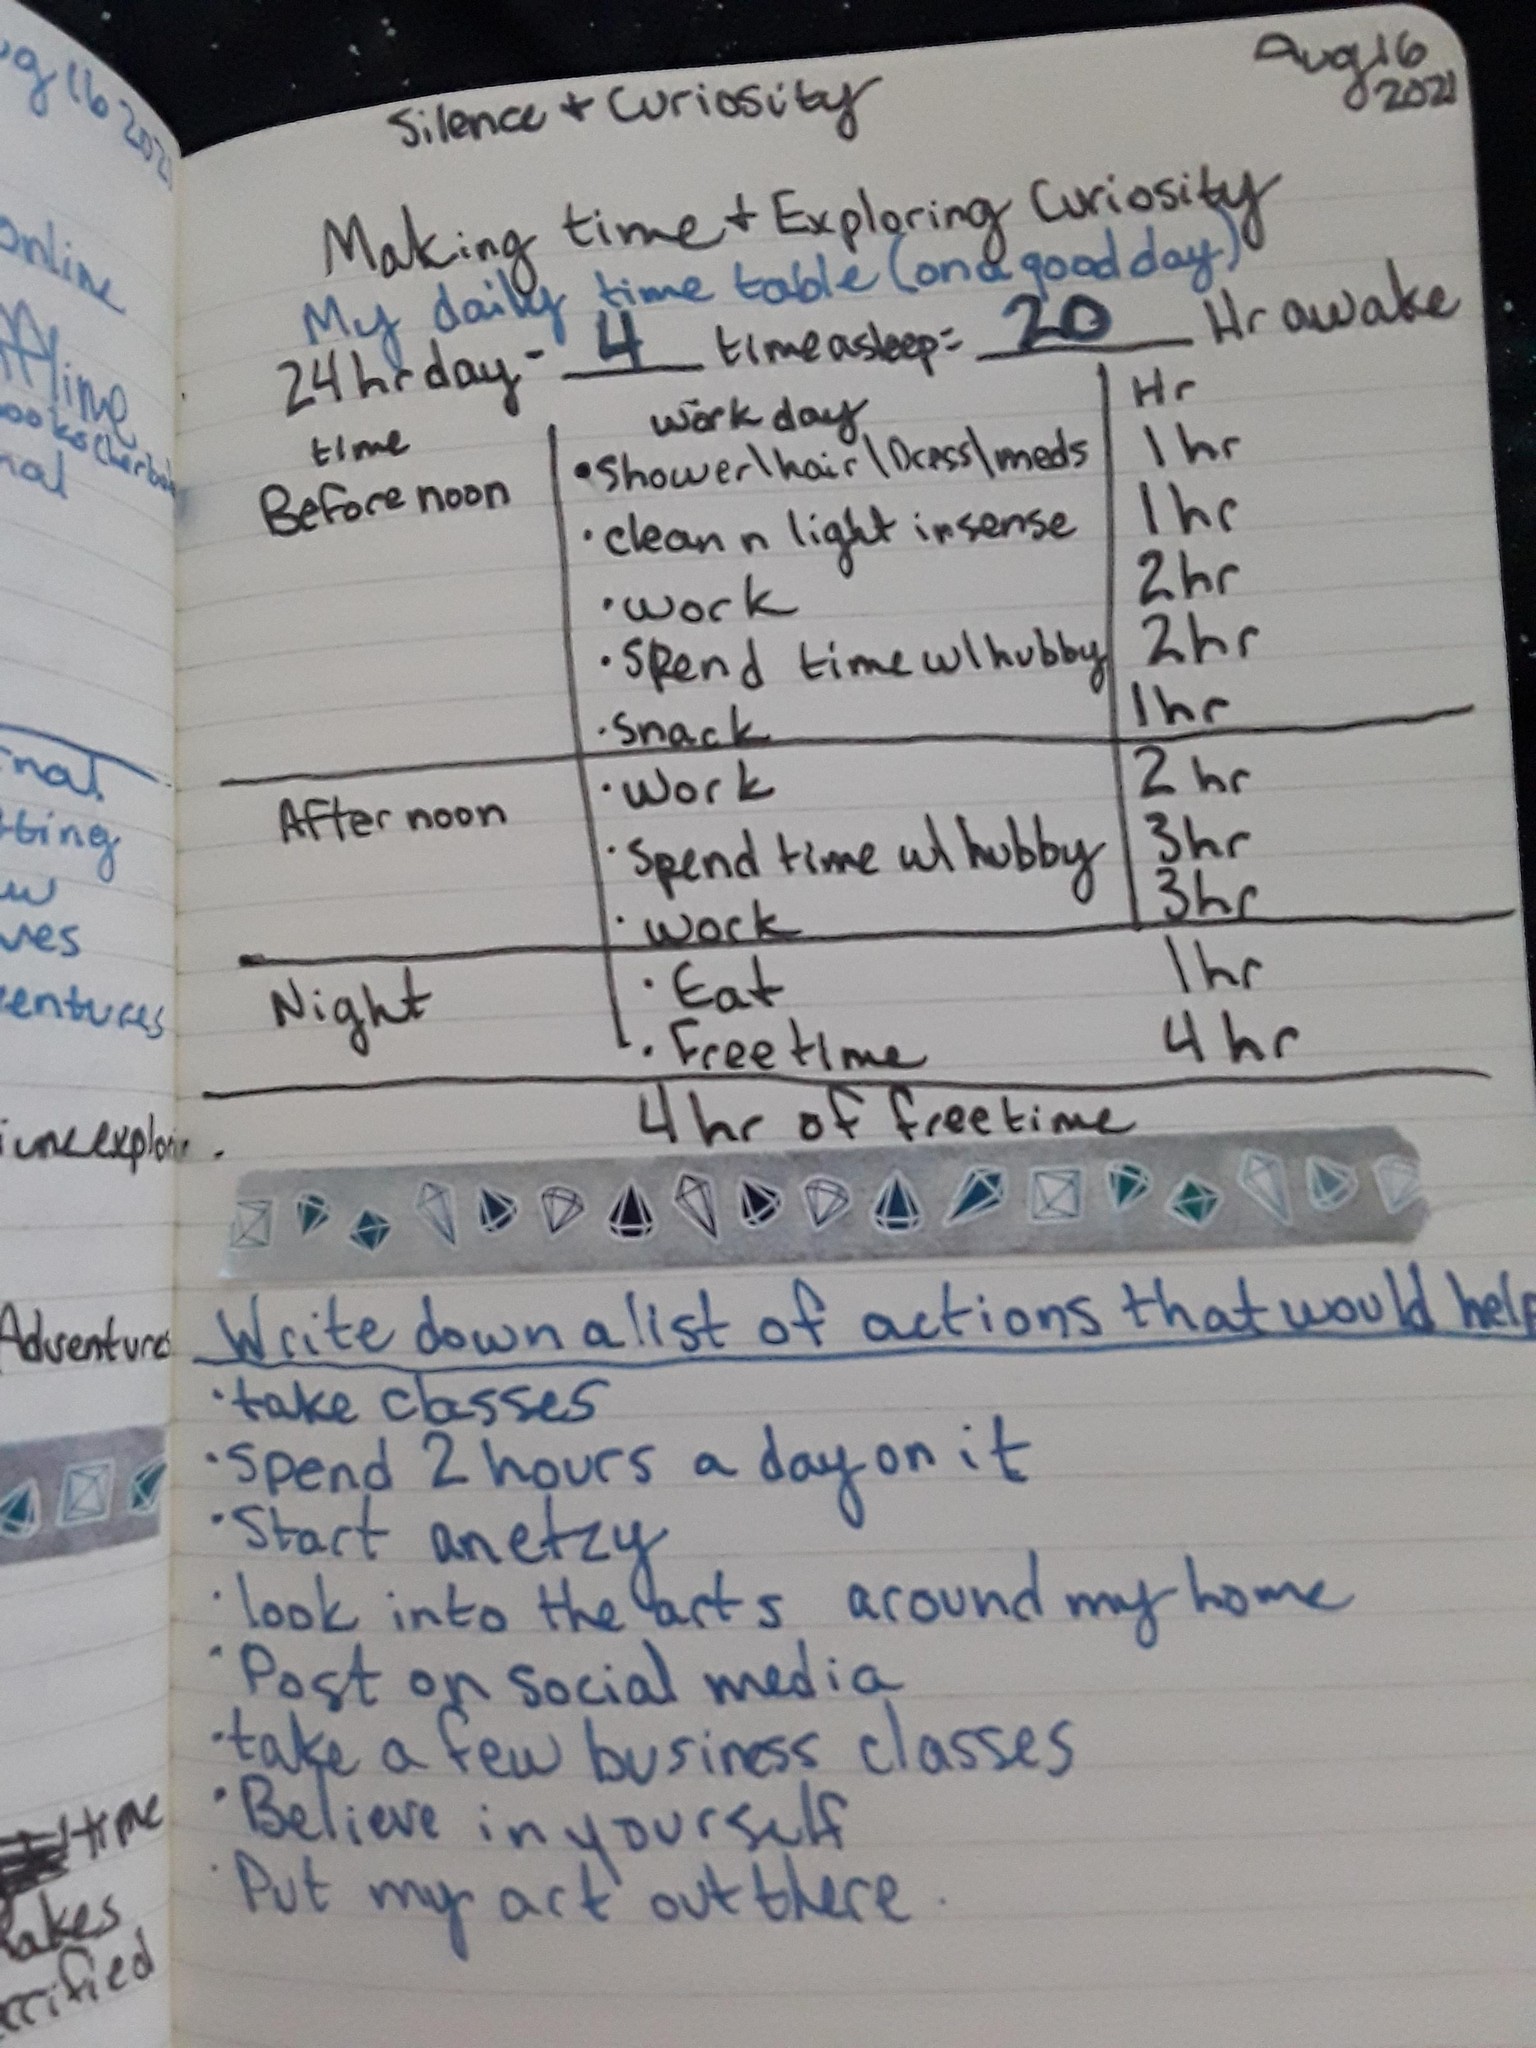 ug 16 2021
online
offline
nal
tting
ves
entures
Adventures
time
akes
Silence + Curiosity
Aug 16
2021
Making time + Exploring Curiosity
My daily time table (on a good day)
24 hr day - 4 time asleep = 20 Hr awake
time work day Hr
Before noon • Shower\hair\Dress\meds 1 hr
• clean n light insense 1 hr
• work 2 hr
• Spend time w/hubby 2 hr
• Snack 1 hr
After noon • Work 2 hr
• Spend time w/ hubby 3 hr
• work 3 hr
Night • Eat 1 hr
• Free time 4 hr
4 hr of free time
Write down a list of actions that would help
• take classes
• Spend 2 hours a day on it
• Start an etzy
• look into the arts around my home
• Post on social media
• take a few business classes
• Believe in yourself
• Put my art out there.